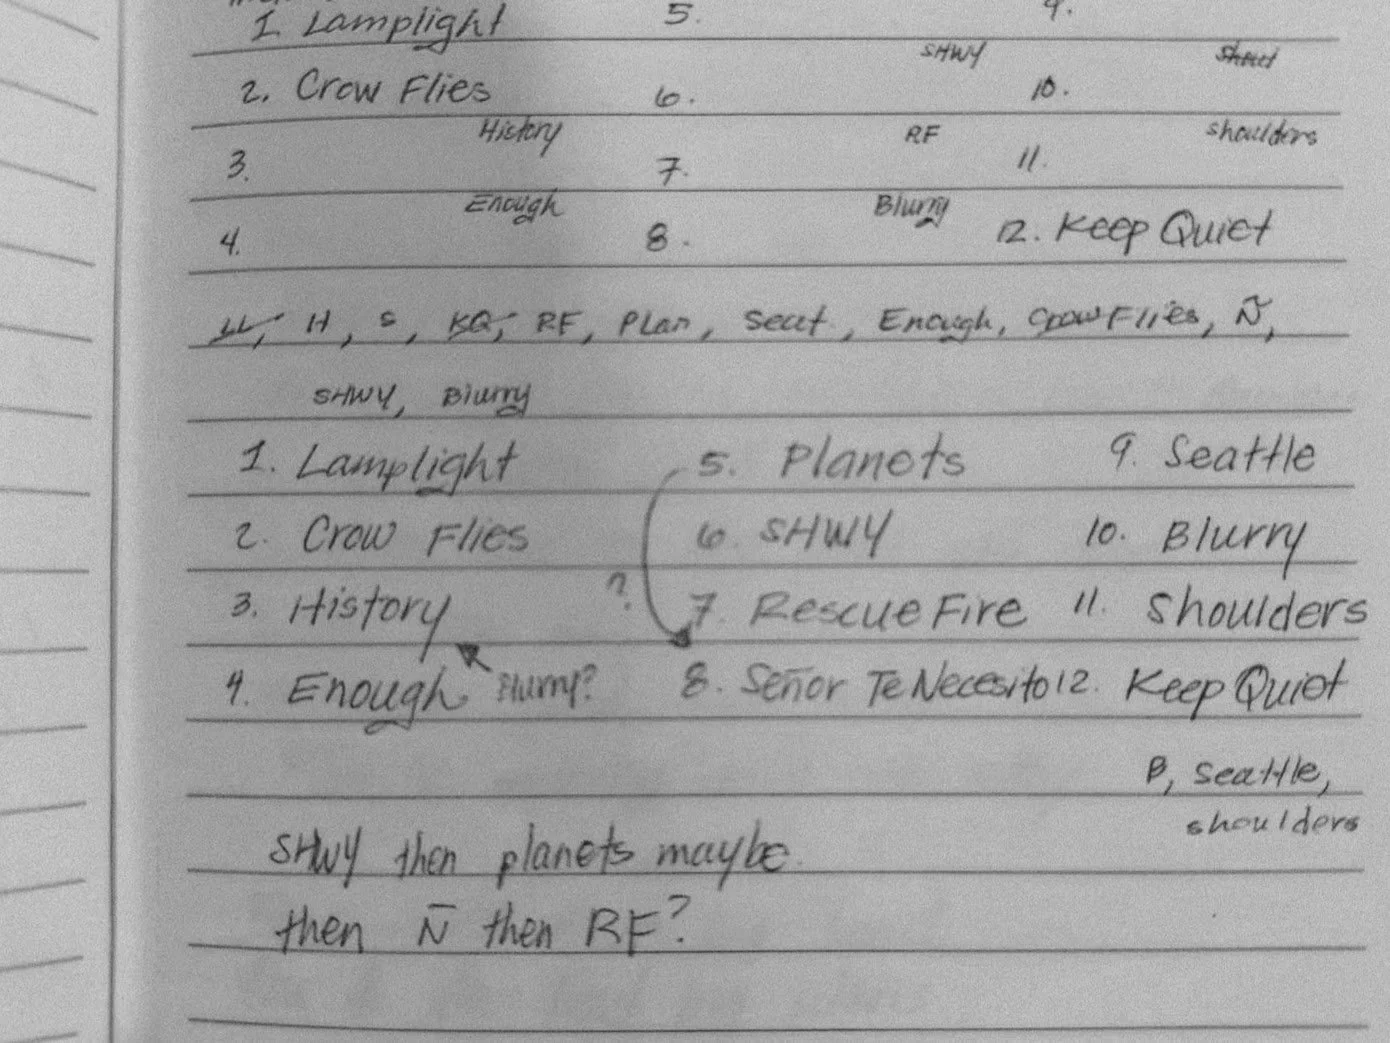 1. Lamplight 5. 9.
SHWY Shoul
2. Crow Flies 6. 10.
History RF shoulders
3. 7. 11.
Enough Blurry
4. 8. 12. Keep Quiet
LL, H, S, KQ, RF, Plan, Seat, Enough, Crow Flies, Ñ,
SHWY, Blurry
1. Lamplight 5. Planets 9. Seattle
2. Crow Flies 6. SHWY 10. Blurry
3. History ? 7. Rescue Fire 11. Shoulders
4. Enough Blurry? 8. Señor Te Necesito 12. Keep Quiet
B, Seattle,
shoulders
SHWY then planets maybe
then Ñ then RF?